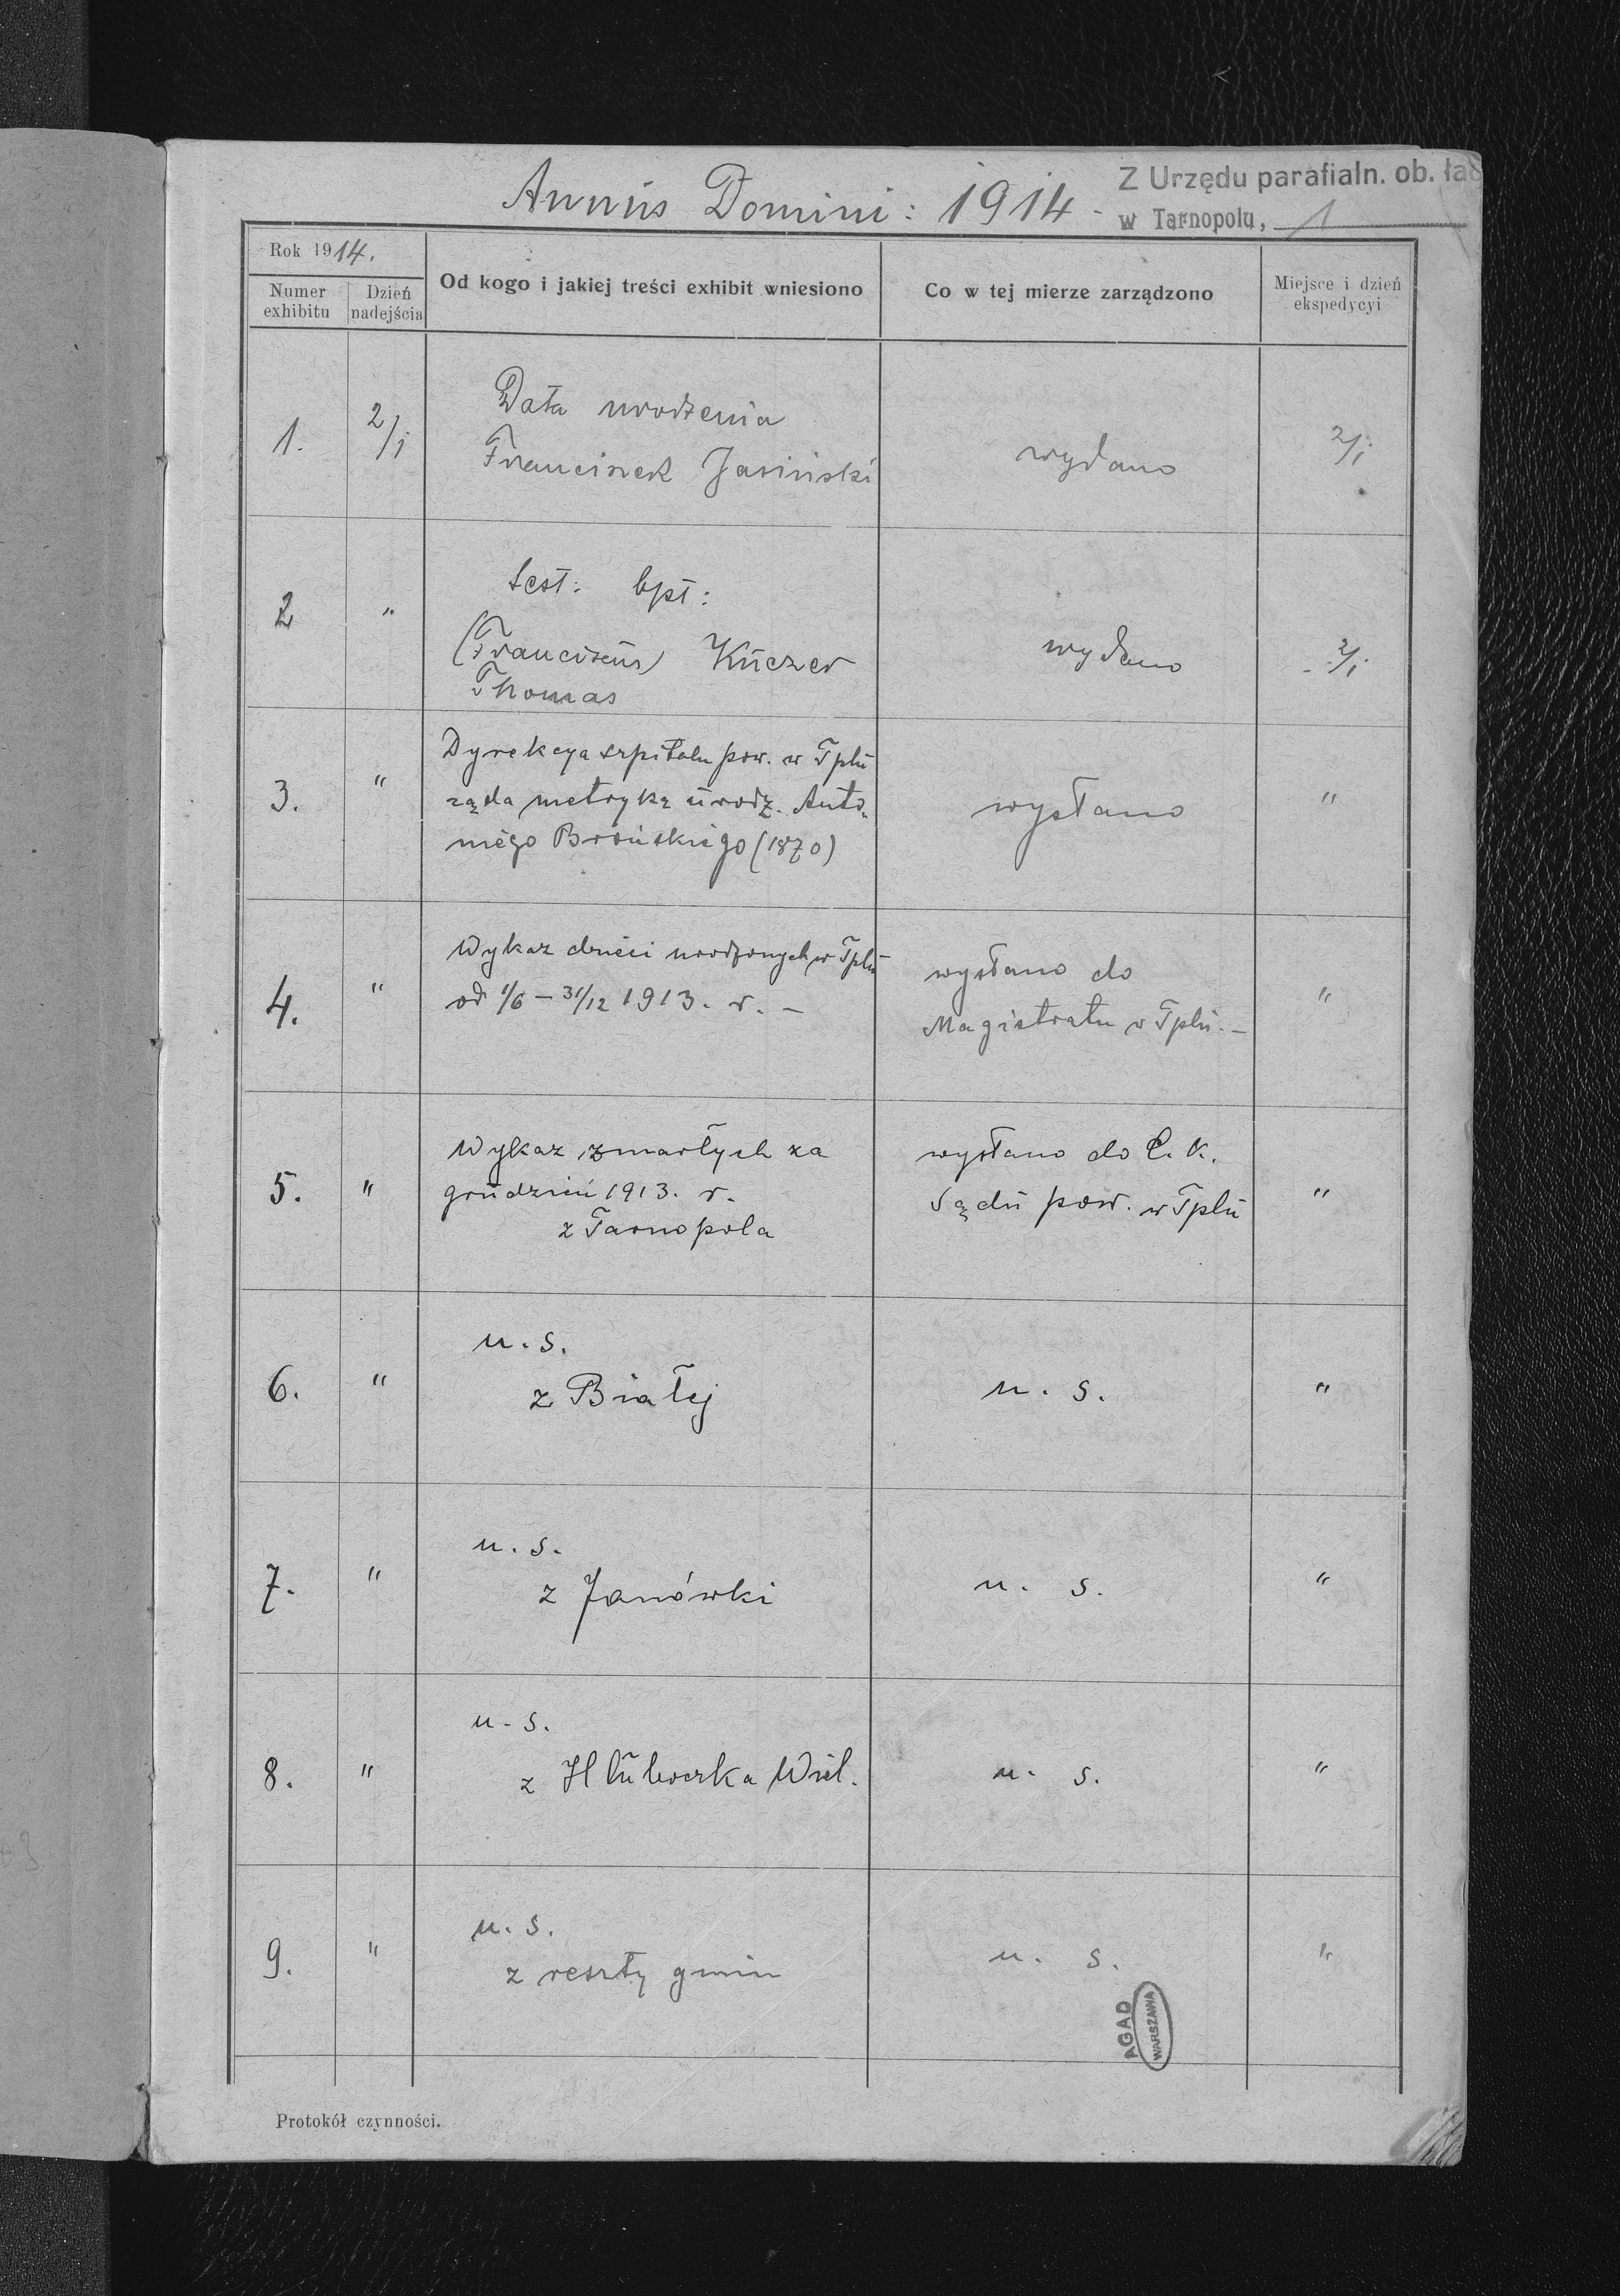 Annus Domini: 1914 -
Z Urzędu parafialn. ob. łać
w Tarnopolu, 1
Rok 1914.
Numer exhibitu
Dzień nadejścia
Od kogo i jakiej treści exhibit wniesiono
Co w tej mierze zarządzono
Miejsce i dzień ekspedycyi
1.
2/I
Data urodzenia
Franciszek Jasiński
wydano
2/I
2
"
test: bpt:
(Franciscus) Kuczer
Thomas
wydano
2/I
3.
"
Dyrekcya szpitalu pow. w Tplu
żąda metrykę urodz. Anto-
niego Brońskiego (1870)
wysłano
"
4.
"
Wykaz dzieci urodzonych w Tplu
od 1/6 - 31/12 1913. r. -
wysłano do
Magistratu w Tplu. -
"
5.
"
Wykaz zmarłych za
grudzień 1913. r.
z Tarnopola
wysłano do C. K.
Sądu pow. w Tplu
"
6.
"
u. s.
z Białej
u. s.
"
7.
"
u. s.
z Janówki
u. s.
"
8.
"
u. s.
z Hłuboczka Wiel.
u. s.
"
9.
"
u. s.
z reszty gmin
u. s.
"
AGAD
WARSZAWA
Protokół czynności.